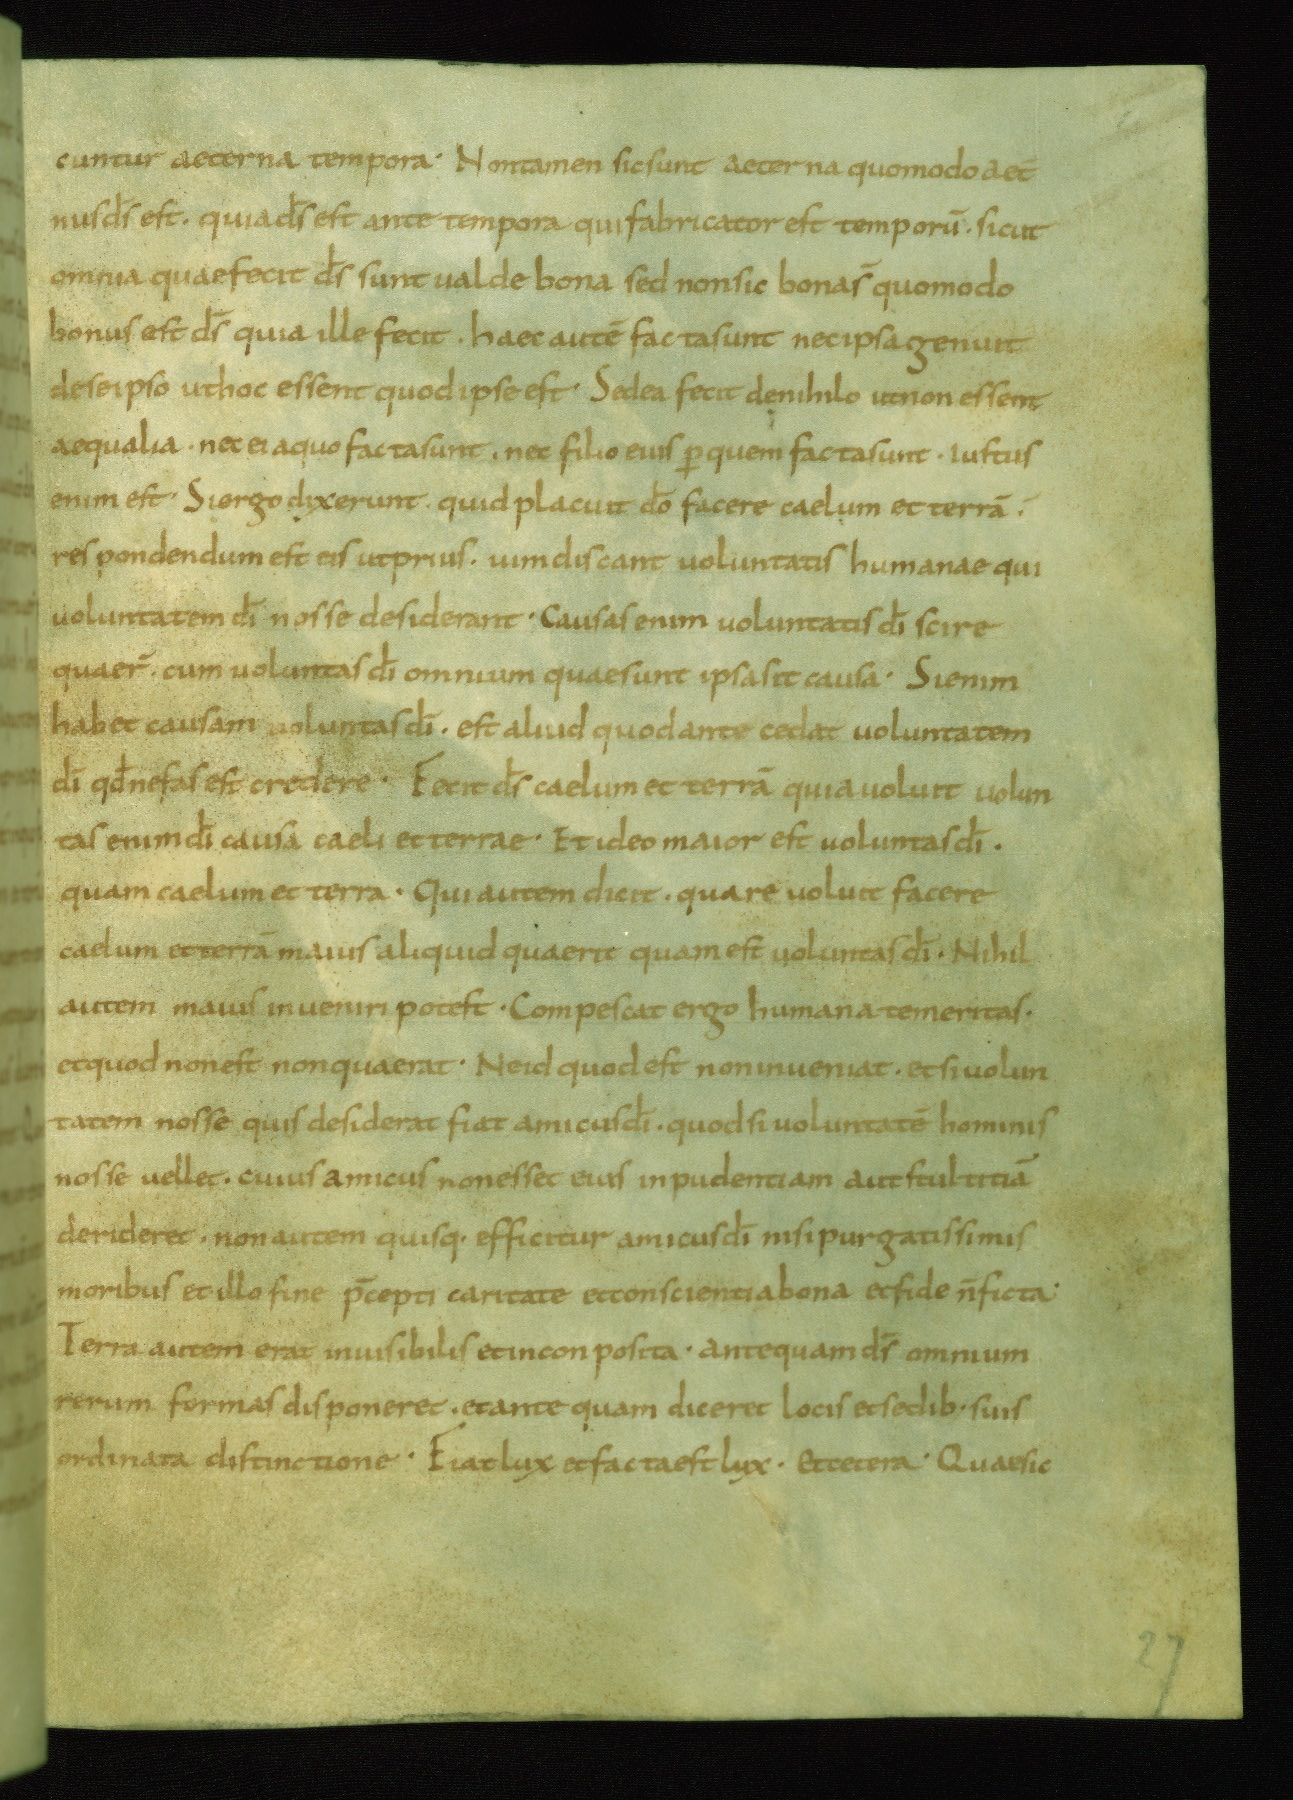 cuntur aeterna tempora· Nontamen sicsunt aeterna quomodo aet̄
nusd̄s est· quiad̄s est ante tempora quifabricator est temporū· sicut
omnia quaefecit d̄s sunt ualde bona sed nonsic bonas̄ quomodo
bonus est d̄s quia ille fecit· haec autē factasunt necipsagenuit
deseipso uthoc essent quodipseest· Sedea fecit denihilo utnon essent
aequalia· nec ei aquo factasunt· nec filio eius ꝑquem factasunt· iustus
enim est· Siergo dixerunt· quid placuit d̄o facere caelum et terrā·
respondendum est eis utprius· uimdiscant uoluntatis humanae qui
uoluntatem d̄i nosse desiderant· Causas enim uoluntatis d̄i scire
quaer̄· cum uoluntas d̄i omnium quaesunt ipsasit causa· Sienim
habet causam uoluntasd̄i· est aliud quodante cedat uoluntatem
d̄i qd̄nefas est credere· Fecit d̄s caelum et terrā quiauoluit uolun
tas enimd̄i causa caeli et terrae· Et ideo maior est uoluntasd̄i·
quam caelum et terra· Qui autem dicit· quare uoluit facere
caelum et terrā maius aliquid quaerit quam est uoluntasd̄i· Nihil
autem maius inueniri potest· Compescat ergo humana temeritas·
etquod nonest nonquaerat· Neid quod est noninueniat· et siuolun
tatem nosse quis desiderat fiat amicusd̄i· quodsi uoluntatē hominis
nosse uellet· cuius amicus nonesset eius inpudentiam aut stultitiā
derideret· non autem quisq· efficitur amicusd̄i nisi purgatissimis
moribus et illo fine p̄cepti caritate etconscientiabona etfide n̄ficta·
Terra autem erat inuisibilis etinconposita· antequam d̄s omnium
rerum formas disponeret· etante quam diceret locis etsedib· suis
ordinata distinctione· Fiat lux etfactaest lux· Et cetera· Quaesic
27